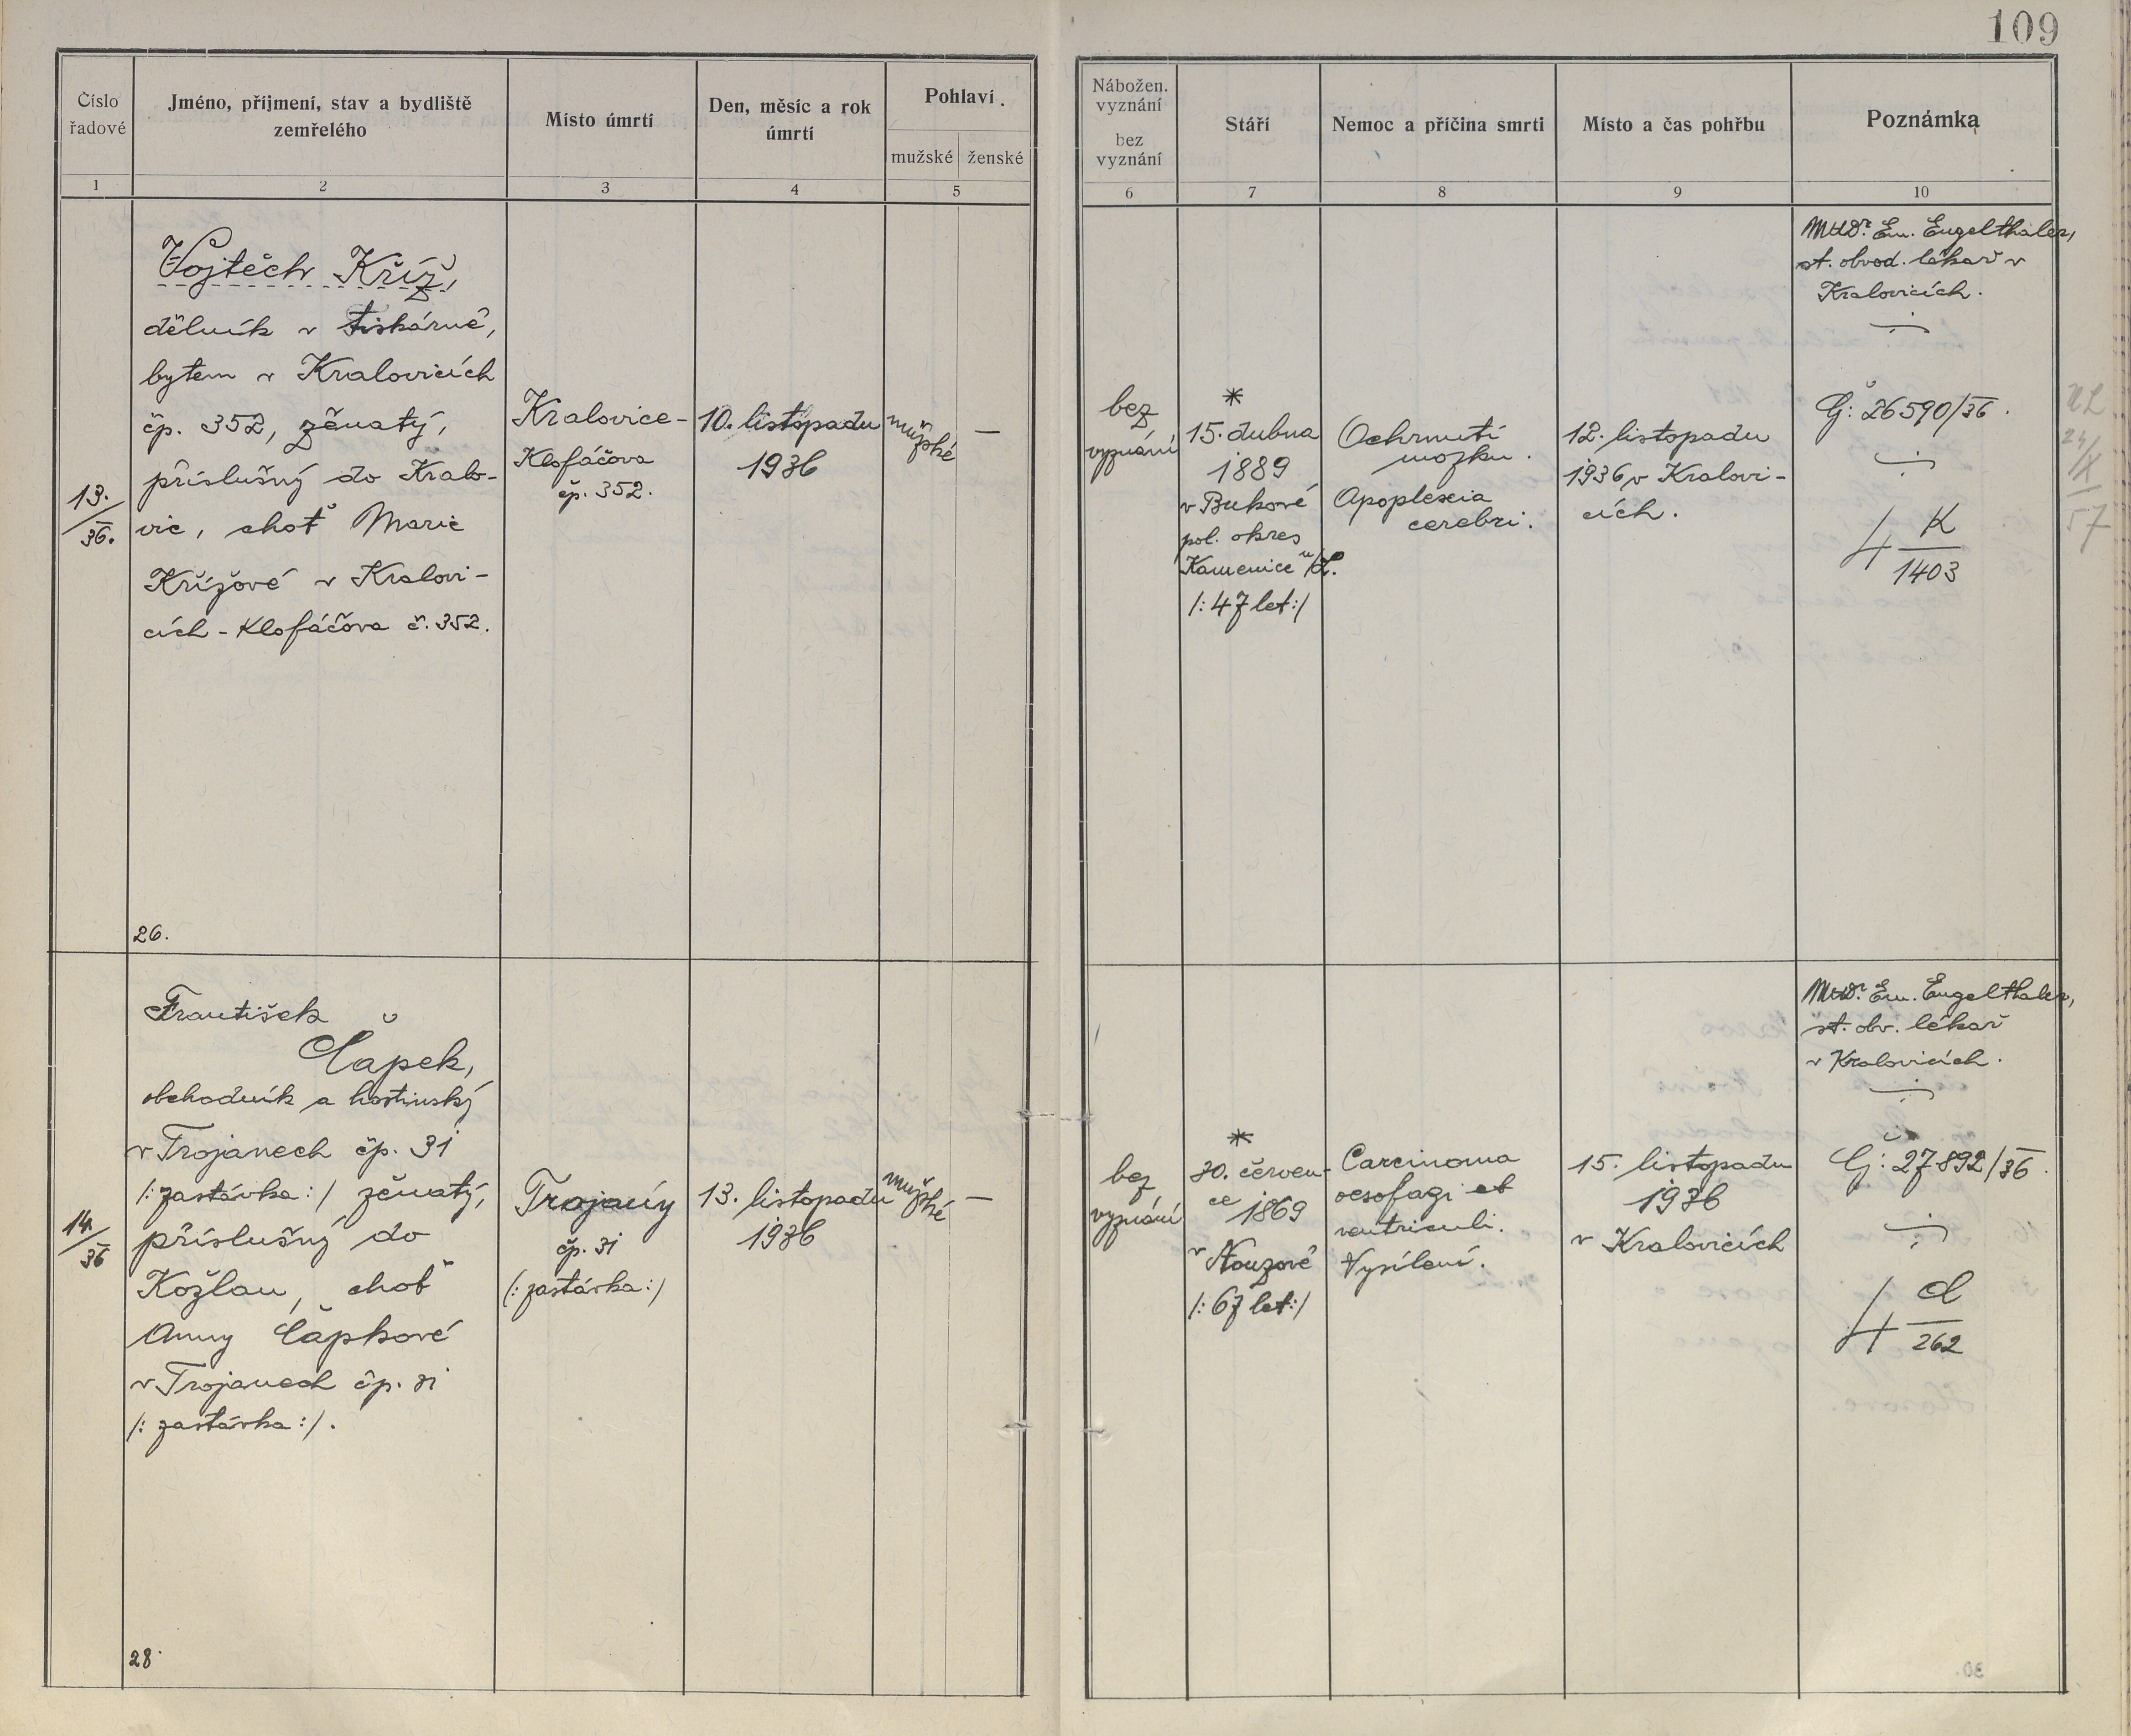 109
Číslo
řadové
Jméno, příjmení, stav a bydliště
zemřelého
Místo úmrtí
Den, měsíc a rok
úmrtí
Pohlaví
mužské
ženské
Nábožen.
vyznání
bez
vyznání
Stáří
Nemoc a příčina smrti
Místo a čas pohřbu
Poznámka
1
2
3
4
5
6
7
8
9
10
13.
36.
Vojtěch Kříž,
dělník v tiskárně,
bytem v Kralovicích
čp. 352, ženatý,
příslušný do Kralo-
vic, choť Marie
Křížové v Kralovi-
cích - Klofáčova č. 352.
26.
Kralovice-
Klofáčova
čp. 352.
10. listopadu
1936
mužské
—
bez
vyznání
*
15. dubna
1889
v Bukové
pol. okres
Kamenice n/L.
/: 47 let :/
Ochrnutí
mozku.
Apoplexia
cerebri.
12. listopadu
1936 v Kralovi-
cích.
MUDr. Em. Engelthaler,
st. obvod. lékař v
Kralovicích.
Čj: 26590/36.
4 K
1403
24/
IX
57
14.
36
František
Čapek,
obchodník a hostinský
v Trojanech čp. 31
/: zastávka :/ ženatý,
příslušný do
Kožlan, choť
Anny Čapkové
v Trojanech čp. 31
/: zastávka :/.
28.
Trojany
čp. 31
/: zastávka :/
13. listopadu
1936
mužské
—
bez
vyznání
*
30. červen-
ce 1869
v Nouzové
/: 67 let :/
Carcinoma
oesofagi et
ventriculi.
Vysílení.
15. listopadu
1936
v Kralovicích
MUDr. Em. Engelthaler,
st. obv. lékař
v Kralovicích.
Čj: 27892/36.
4
262